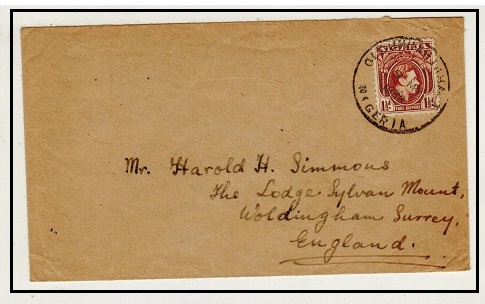 NIGERIA
1½d 1½d
Mr. Harold H. Simmons
The Lodge Sylvan Mount,
Woldingham Surrey,
England.